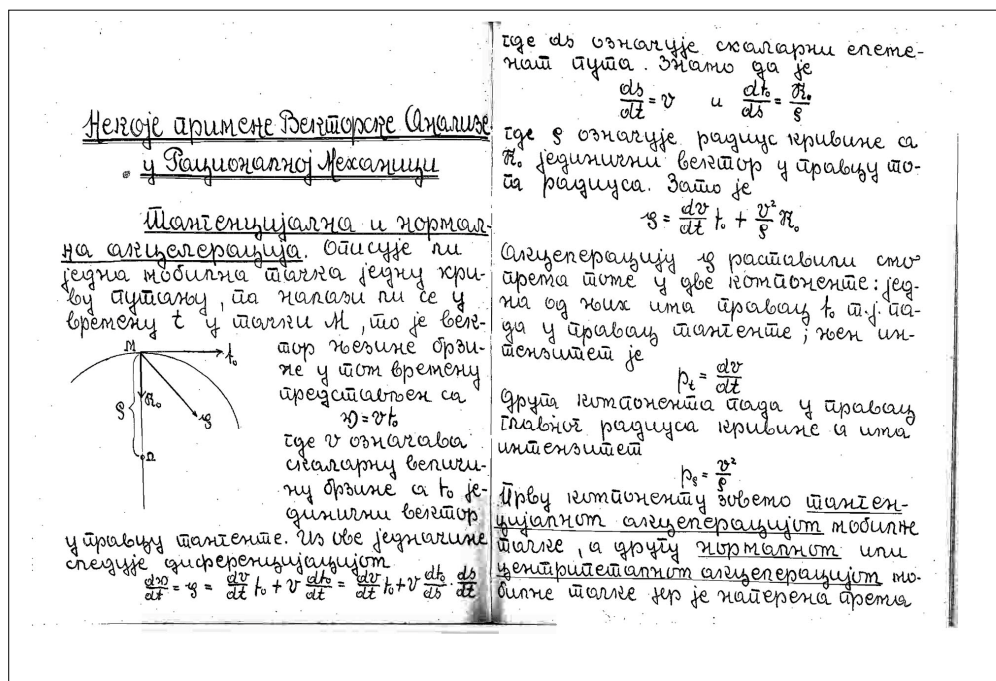 Некоје примене Векторске Анализе
у Рационалној Механици
Тангенцијална и нормал-
на акцелерација. Описује ли
једна мобилна тачка једну кри-
ву путању, па налази ли се у
времену t у тачки M, то је век-
тор њезине брзи-
не у том времену
представљен са
𝔳 = v t₀
где v означава
скаларну величи-
ну брзине а t₀ је-
динични вектор
у правцу тангенте. Из ове једначине
следује диференцијацијом
d𝔳/dt = 𝔭 = dv/dt t₀ + v dt₀/dt = dv/dt t₀ + v dt₀/ds · ds/dt
M
t₀
ℜ₀
ρ
𝔭
Ω
где ds означује скаларни елеме-
нат пута. Знамо да је
ds/dt = v и dt₀/ds = ℜ₀/ρ
где ρ означује радиус кривине са
ℜ₀ јединични вектор у правцу то-
га радиуса. Зато је
𝔭 = dv/dt t₀ + v²/ρ ℜ₀
Акцелерацију 𝔭 раставили смо
према томе у две компоненте: јед-
на од њих има правац t₀ т.ј. па-
да у правац тангенте; њен ин-
тензитет је
p_t = dv/dt
Друга компонента пада у правац
главног радиуса кривине а има
интензитет
p_ρ = v²/ρ
Прву компоненту зовемо танген-
цијалном акцелерацијом мобилне
тачке, а другу нормалном или
центрипеталном акцелерацијом мо-
билне тачке јер је наперена према